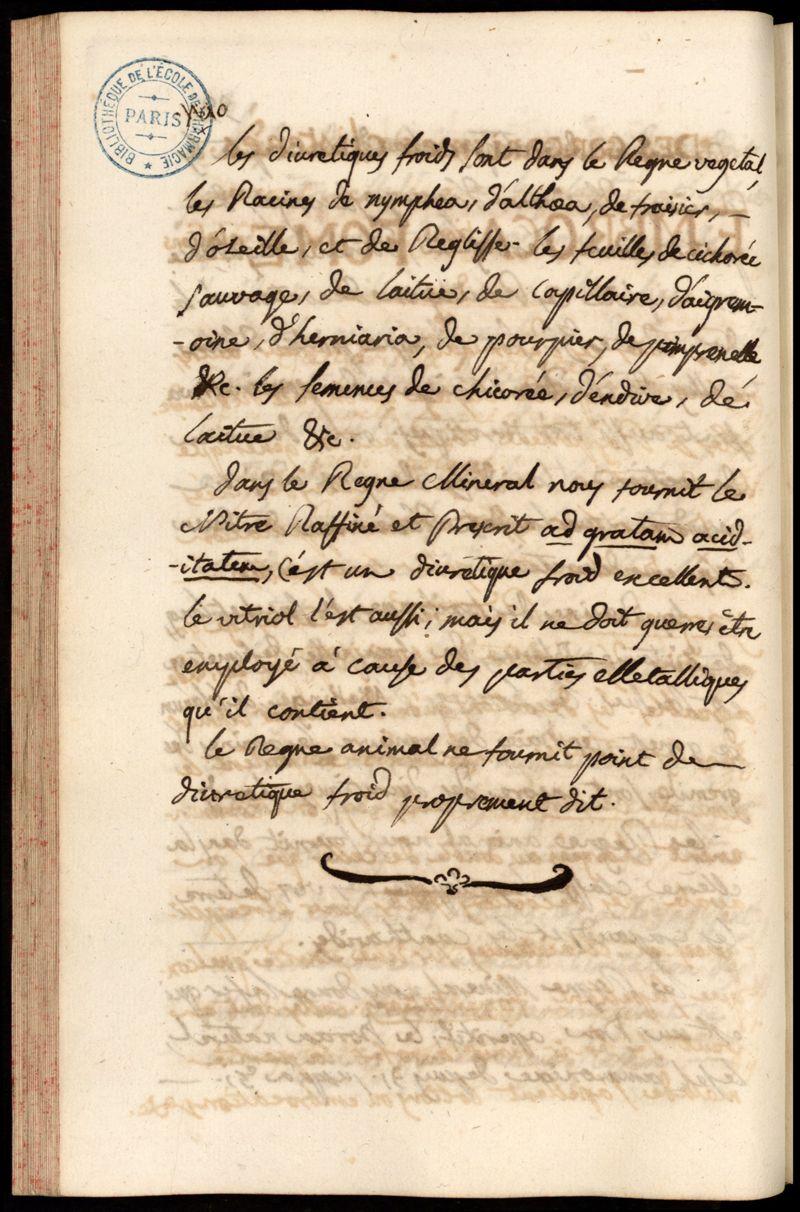 BIBLIOTHÈQUE DE L'ÉCOLE DE PHARMACIE
PARIS
les diuretiques froids sont dans le Regne vegetal,
les Racines de nymphea, d'althœa, de fraisier,
d'ozeille, et de Reglisse - les feuilles de cichorée
sauvage, de laitüe, de capillaire, d'aigrem-
-oine, d'herniaria, de pourpier, de pimprenelle
&c. les semences de chicorée, d'éndive, dé
laitue &c.
dans le Regne Mineral nous fournit le
Nitre Raffiné et Prescrit ad gratam acid-
-itatem, c'est un diuretique froid excellent.
le vitriol l'est aussi; mais il ne doit querres être
employé à cause des parties Metalliques
qu'il contient.
le Regne animal ne fournit point de
diuretique froid proprement dit.